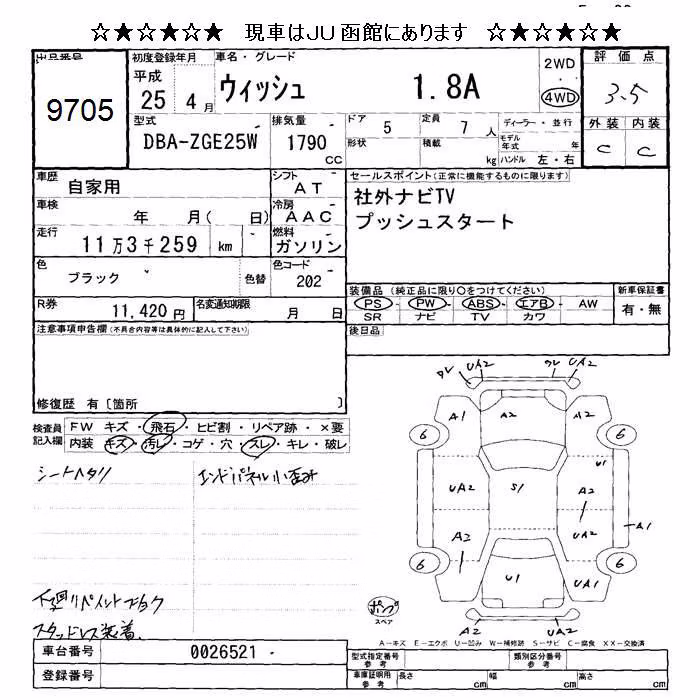 ☆★☆★☆★ 現車はJU函館にあります ☆★☆★☆★
出品番号
9705
初度登録年月
平成
25 4月
車名・グレード
ウィッシュ 1.8A
2WD
・
4WD
評価点
3.5
外装 内装
C C
型式
DBA-ZGE25W
排気量
1790
CC
ドア 5
定員 7人
ディーラー・並行
形状
積載 kg
モデル年式 年
ハンドル 左・右
車歴
自家用
シフト
AT
車検
年 月( 日)
冷房
AAC
走行
11万3千259 km
燃料
ガソリン
色
ブラック
色替
色コード
202
R券
11,420円
名変通知期限
月 日
セールスポイント(正常に機能するものに限ります)
社外ナビTV
プッシュスタート
装備品(純正品に限り○をつけてください)
PS・PW・ABS・エアB・AW
SR ナビ TV カワ
新車保証書
有・無
後日品
注意事項申告欄(不具合内容等は具体的に記入して下さい)
修復歴 有〔箇所 〕
検査員記入欄
FW キズ・飛石・ヒビ割・リペア跡・×要
内装 キズ・汚レ・コゲ・穴・スレ・キレ・破レ
シートヘタリ
エンドパネル小歪み
下廻リペイントブラク
スタッドレス装着、
ワレ UA2 ワレ UA2
A1 A2 A2
6 6
U1
UA2 S1 A2
A1
A2 UA2
6 6
A2 U1 UA1
A2 UA2
ポンプ
スペア
A-キズ E-エクボ U-凹み W-補修跡 S-サビ C-腐食 XX-交換済
車台番号 0026521
登録番号
型式指定番号
参考
類別区分番号
参考
車庫証明用
参考
長さ cm
幅 cm
高さ cm